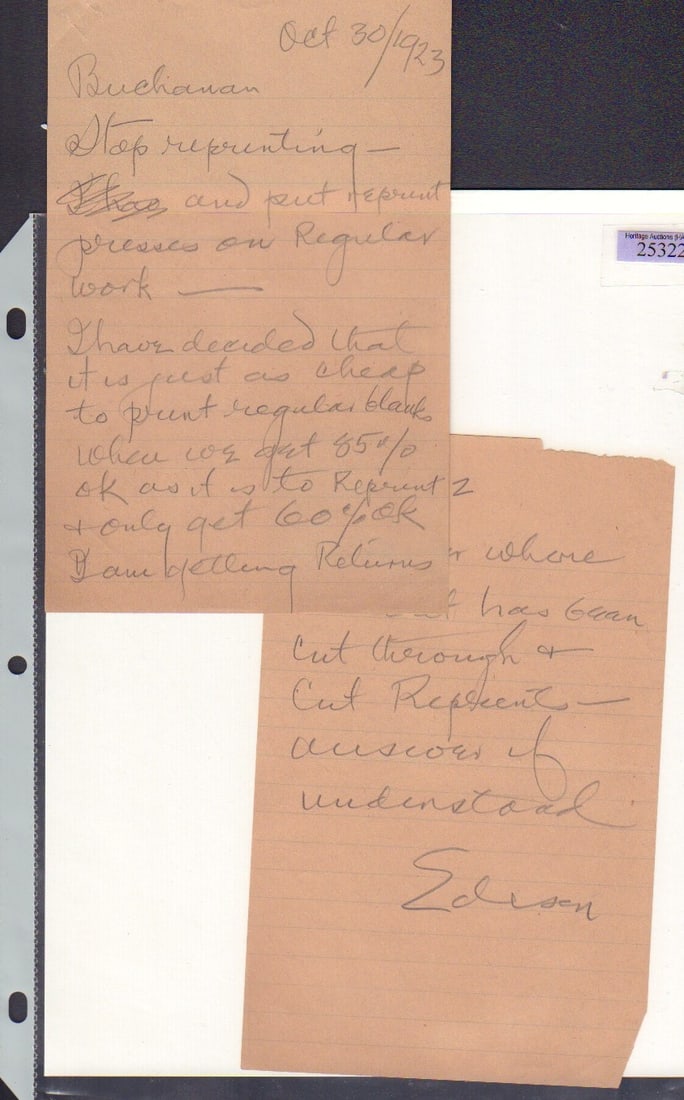 Oct 30/1923
Buchanan
Stop reprinting —
and put reprint
presses on Regular
work —
I have decided that
it is just as cheap
to print regular blanks
when we get 85%
ok as it is to Reprint 2
+ only get 60% ok
I am getting Returns
where
has been
cut through +
Cut Reprints —
answer if
understood
Edison
Heritage Auctions
25322